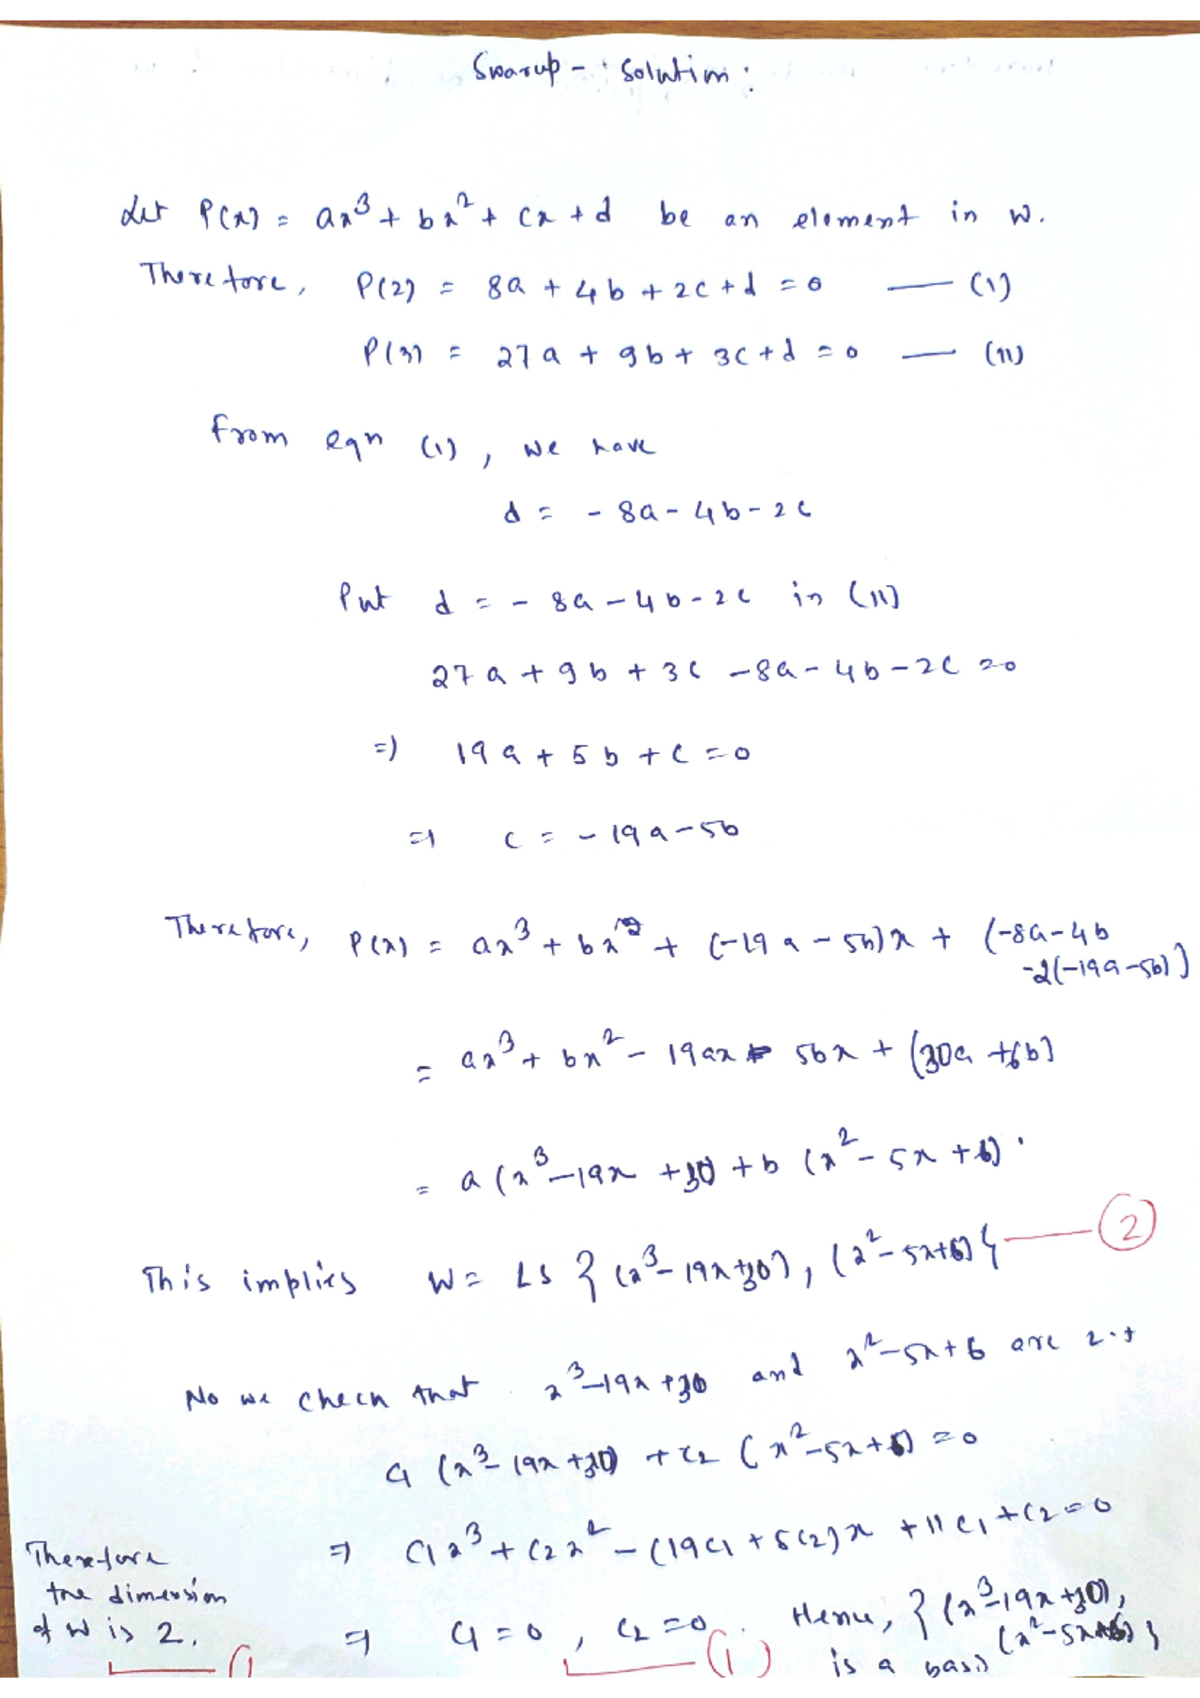 Swarup - Solution:
Let P(x) = ax³ + bx² + cx + d be an element in W.
Therefore, P(2) = 8a + 4b + 2c + d = 0 —— (I)
P(3) = 27a + 9b + 3c + d = 0 —— (II)
From eqn (I), we have
d = - 8a - 4b - 2c
Put d = - 8a - 4b - 2c in (II)
27a + 9b + 3c - 8a - 4b - 2c = 0
=) 19a + 5b + c = 0
=) c = - 19a - 5b
Therefore, P(x) = ax³ + bx² + (-19a - 5b)x + (-8a - 4b
-2(-19a - 5b))
= ax³ + bx² - 19ax - 5bx + (30a + 6b)
= a (x³ - 19x + 30) + b (x² - 5x + 6).
This implies W = LS { (x³ - 19x + 30), (x² - 5x + 6) } —— 2
No we check that x³ - 19x + 30 and x² - 5x + 6 are L.I
C1 (x³ - 19x + 30) + C2 (x² - 5x + 6) = 0
=) C1x³ + C2x² - (19C1 + 5C2)x + 11C1 + C2 = 0
=) C1 = 0, C2 = 0. (1) Hence, { (x³ - 19x + 30),
(x² - 5x + 6) }
is a basis
Therefore
the dimension
of W is 2.
(1